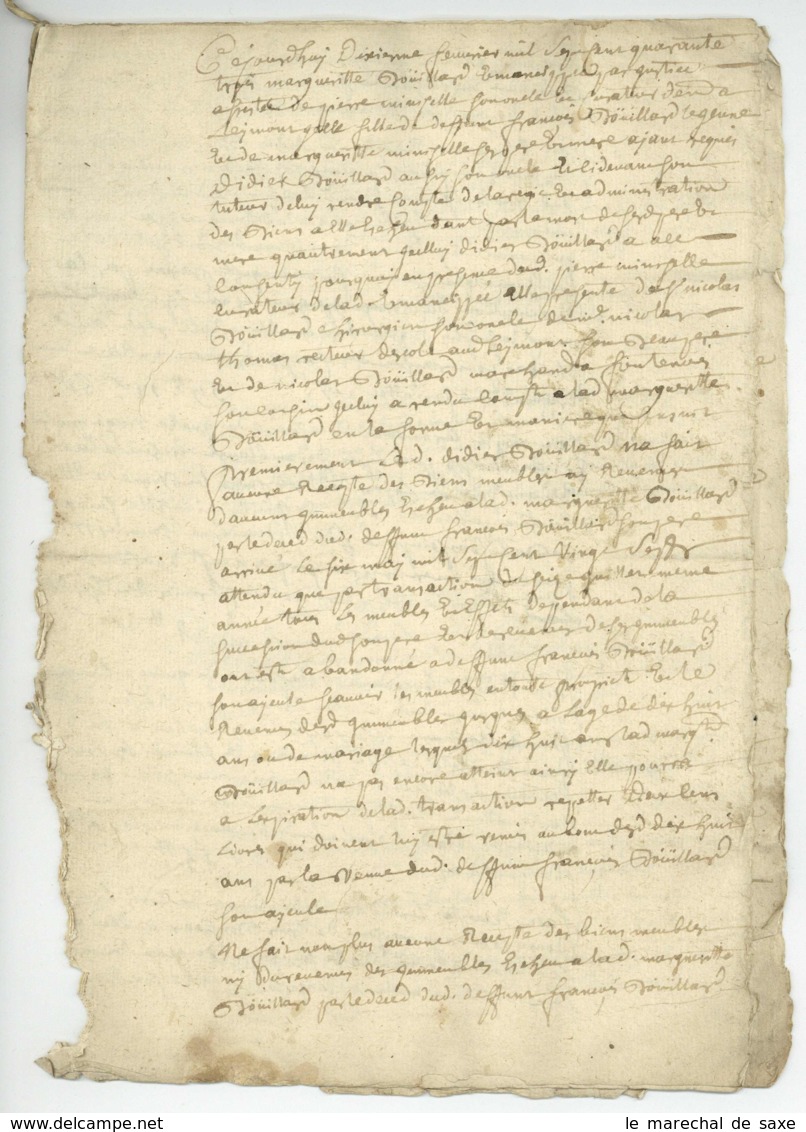 Cejourdhuy dixieme fevrier mil sept cent quarante
trois margueritte Boüillard Emancippée par justice
assistée de pierre minselle son oncle et curateur dem.t a
Leymont elle fille de deffunt francois Boüillard le jeune
et de margueritte minselle ses pere et mere ajant requis
Didier Boüillard aussy son oncle et cidevant son
tuteur de luy rendre compte de la regie et administration
des Biens a elle Echeu dant par la mort de sesd. pere et
mere quautrement que luy Didier Boüillard a
consenty pourquoi en presence dud. pierre minselle
curateur de lad. Emancippée assistée de S.r nicolas
Boüillard chirurgien son oncle de m.e nicolas
thomas recteur d'escole aud Leymont son
et de nicolas Boüillard marchand a fontenois
son cousin que luy a rendu compte a lad margueritte
Boüillard en la forme et maniere que suit
Premierement Led. didier Boüillard na fait
aucune Recepte des Biens meubles ny Revenus
daucuns immeubles Echeu a lad. margueritte Boüillard
par le deced dud. deffunt francois Boüillard son pere
arrivé le six may mil sept cent vingt sept
attendu que par transaction du seize juillet meme
année tous les meubles et Effets dependant de la
succession dud son pere et les revenus de ses immeubles
ont esté abandonné a deffunt francois Boüillard
son ajeule scauoir les meubles en toutte propriété et le
Revenus desd immeubles jusques a Lage de dix huit
ans ou de mariage lesquels dix huit ans lad marg.te
Boüillard na pas encore atteint ainsy Elle pourra
a Lexpiration de lad. transaction repetter deux cens
Livres qui doivent luy estre remis au bout desd dix huit
ans par la veuve dud. deffunt francois Boüillard
son ajeule
Ne fait non plus aucune Recepte des biens meubles
ny du revenus des immeubles Echeu a lad. margueritte
Boüillard par le deced dud. deffunt francois Boüillard
le marechal de saxe